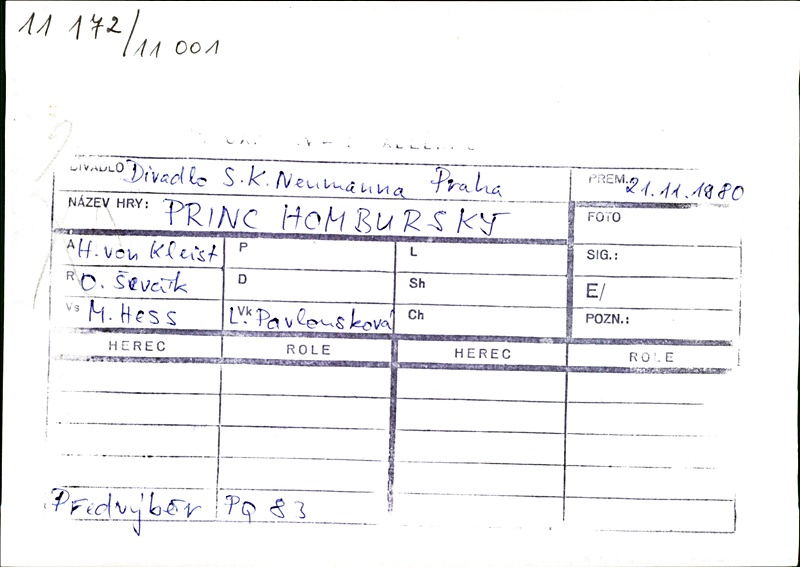 11 172/11 001
DIVADLO Divadlo S.K. Neumanna Praha PREM. 21.11.1980
NÁZEV HRY: PRINC HOMBURSKÝ FOTO
A H. von Kleist P L SIG.:
R O. Ševčík D Sh E/
Vs M. Hess Vk L. Pavlousková Ch POZN.:
HEREC ROLE HEREC ROLE
Předvýběr PQ 83